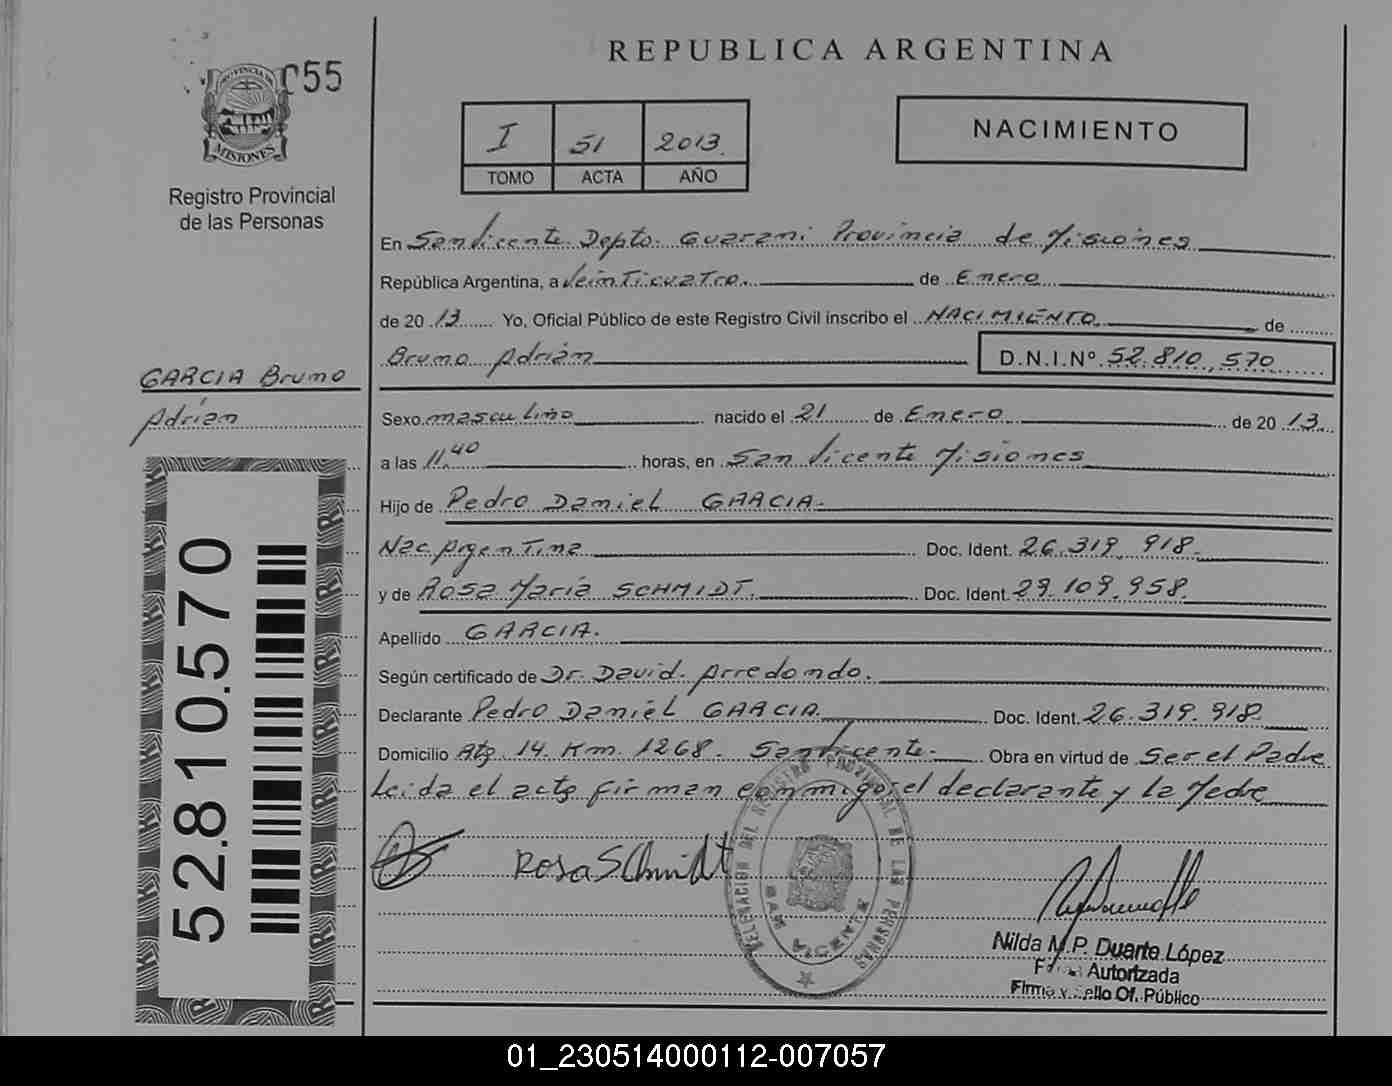 REPUBLICA ARGENTINA
055
PROVINCIA DE
MISIONES
Registro Provincial
de las Personas
I 51 2013
TOMO ACTA AÑO
NACIMIENTO
En San Vicente Depto. Guarani Provincia de Misiones
República Argentina, a Veinticuatro. de Enero
de 20 13 Yo, Oficial Público de este Registro Civil inscribo el NACIMIENTO de
Bruno Adrián D.N.I.Nº 52.810.570
GARCIA Bruno
Adrían
Sexo masculino nacido el 21 de Enero de 20 13
a las 11,40 horas, en San Vicente Misiones
Hijo de Pedro Daniel GARCIA.
Nac. Argentina Doc. Ident. 26.319.918.
y de Rosa María SCHMIDT. Doc. Ident. 29.109.958.
Apellido GARCIA.
Según certificado de Dr. David Arredondo.
Declarante Pedro Daniel GARCIA. Doc. Ident. 26.319.918
Domicilio Rta. 14. Km. 1268. San Vicente. Obra en virtud de Ser el Padre
Leida el acta firman conmigo, el declarante y la Madre
52.810.570
Rosa Schmidt
DELEGACION DEL REGISTRO PROVINCIAL DE LAS PERSONAS
SAN VICENTE
Nilda M.P. Duarte López
Firma Autorizada
Firma y Sello Of. Público
01_230514000112-007057